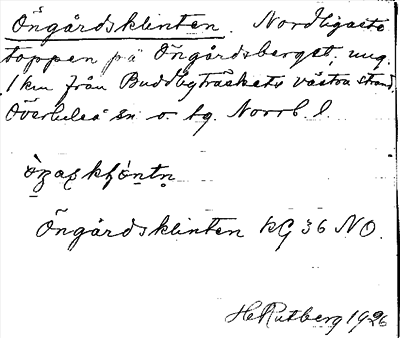 Öngårdsklinten. Nordligaste
toppen på Öngårdsberget, ung.
1 km från Buddbyträskets västra strand,
Överluleå sn o. tg. Norrb. l.
Öngårdsklinten KG 36 NO.
H Rutberg 1926